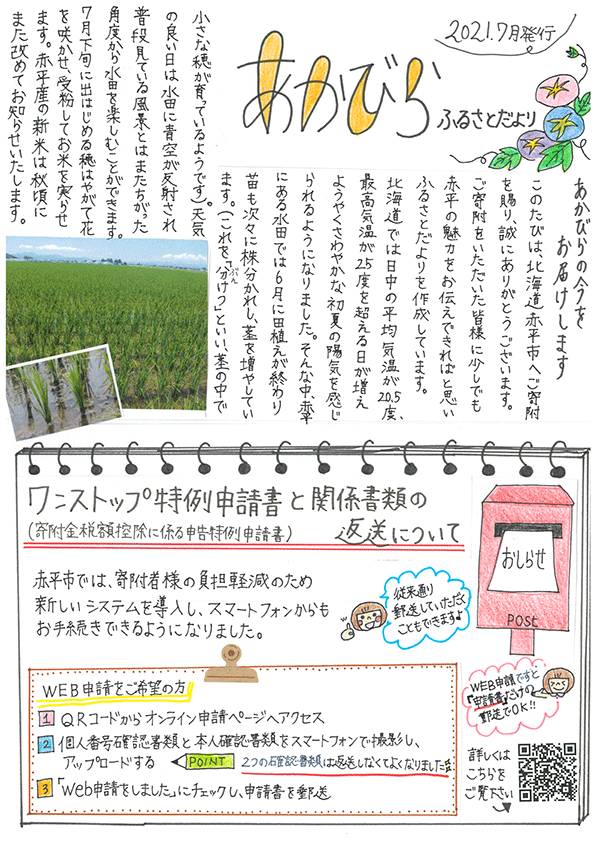 2021.7月発行
あかびら
ふるさとだより
あかびらの今を
お届けします
このたびは、北海道赤平市へご寄附
を賜り、誠にありがとうございます。
ご寄附をいただいた皆様に少しでも
赤平の魅力をお伝えできればと思い
ふるさとだよりを作成しています。
北海道では日中の平均気温が20.5度、
最高気温が25度を超える日が増え
ようやくさわやかな初夏の陽気を感じ
られるようになりました。そんな中、赤平
にある水田では6月に田植えが終わり
苗も次々に株分かれし、茎を増やしてい
ます。(これを、「分けつ」といい、茎の中で
ぶん
小さな穂が育っているようです)。天気
の良い日は水田に青空が反射され
普段見ている風景とはまたちがった
角度から水田を楽しむことができます。
7月下旬に出はじめる穂はやがて花
を咲かせ、受粉してお米を実らせ
ます。赤平産の新米は秋頃に
また改めてお知らせいたします。
ワンストップ特例申請書と関係書類の
(寄附金税額控除に係る申告特例申請書)
返送について
おしらせ
POST
赤平市では、寄附者様の負担軽減のため
新しいシステムを導入し、スマートフォンからも
お手続きできるようになりました。
従来通り
郵送していただく
こともできます♪
WEB申請をご希望の方
1 QRコードからオンライン申請ページへアクセス
2 個人番号確認書類と本人確認書類をスマートフォンで撮影し、
アップロードする
POINT 2つの確認書類は返送しなくてよくなりました
3 「Web申請をしました」にチェックし、申請書を郵送
WEB申請ですと
「申請書」だけの
郵送でOK!!
詳しくは
こちらを
ご覧下さい